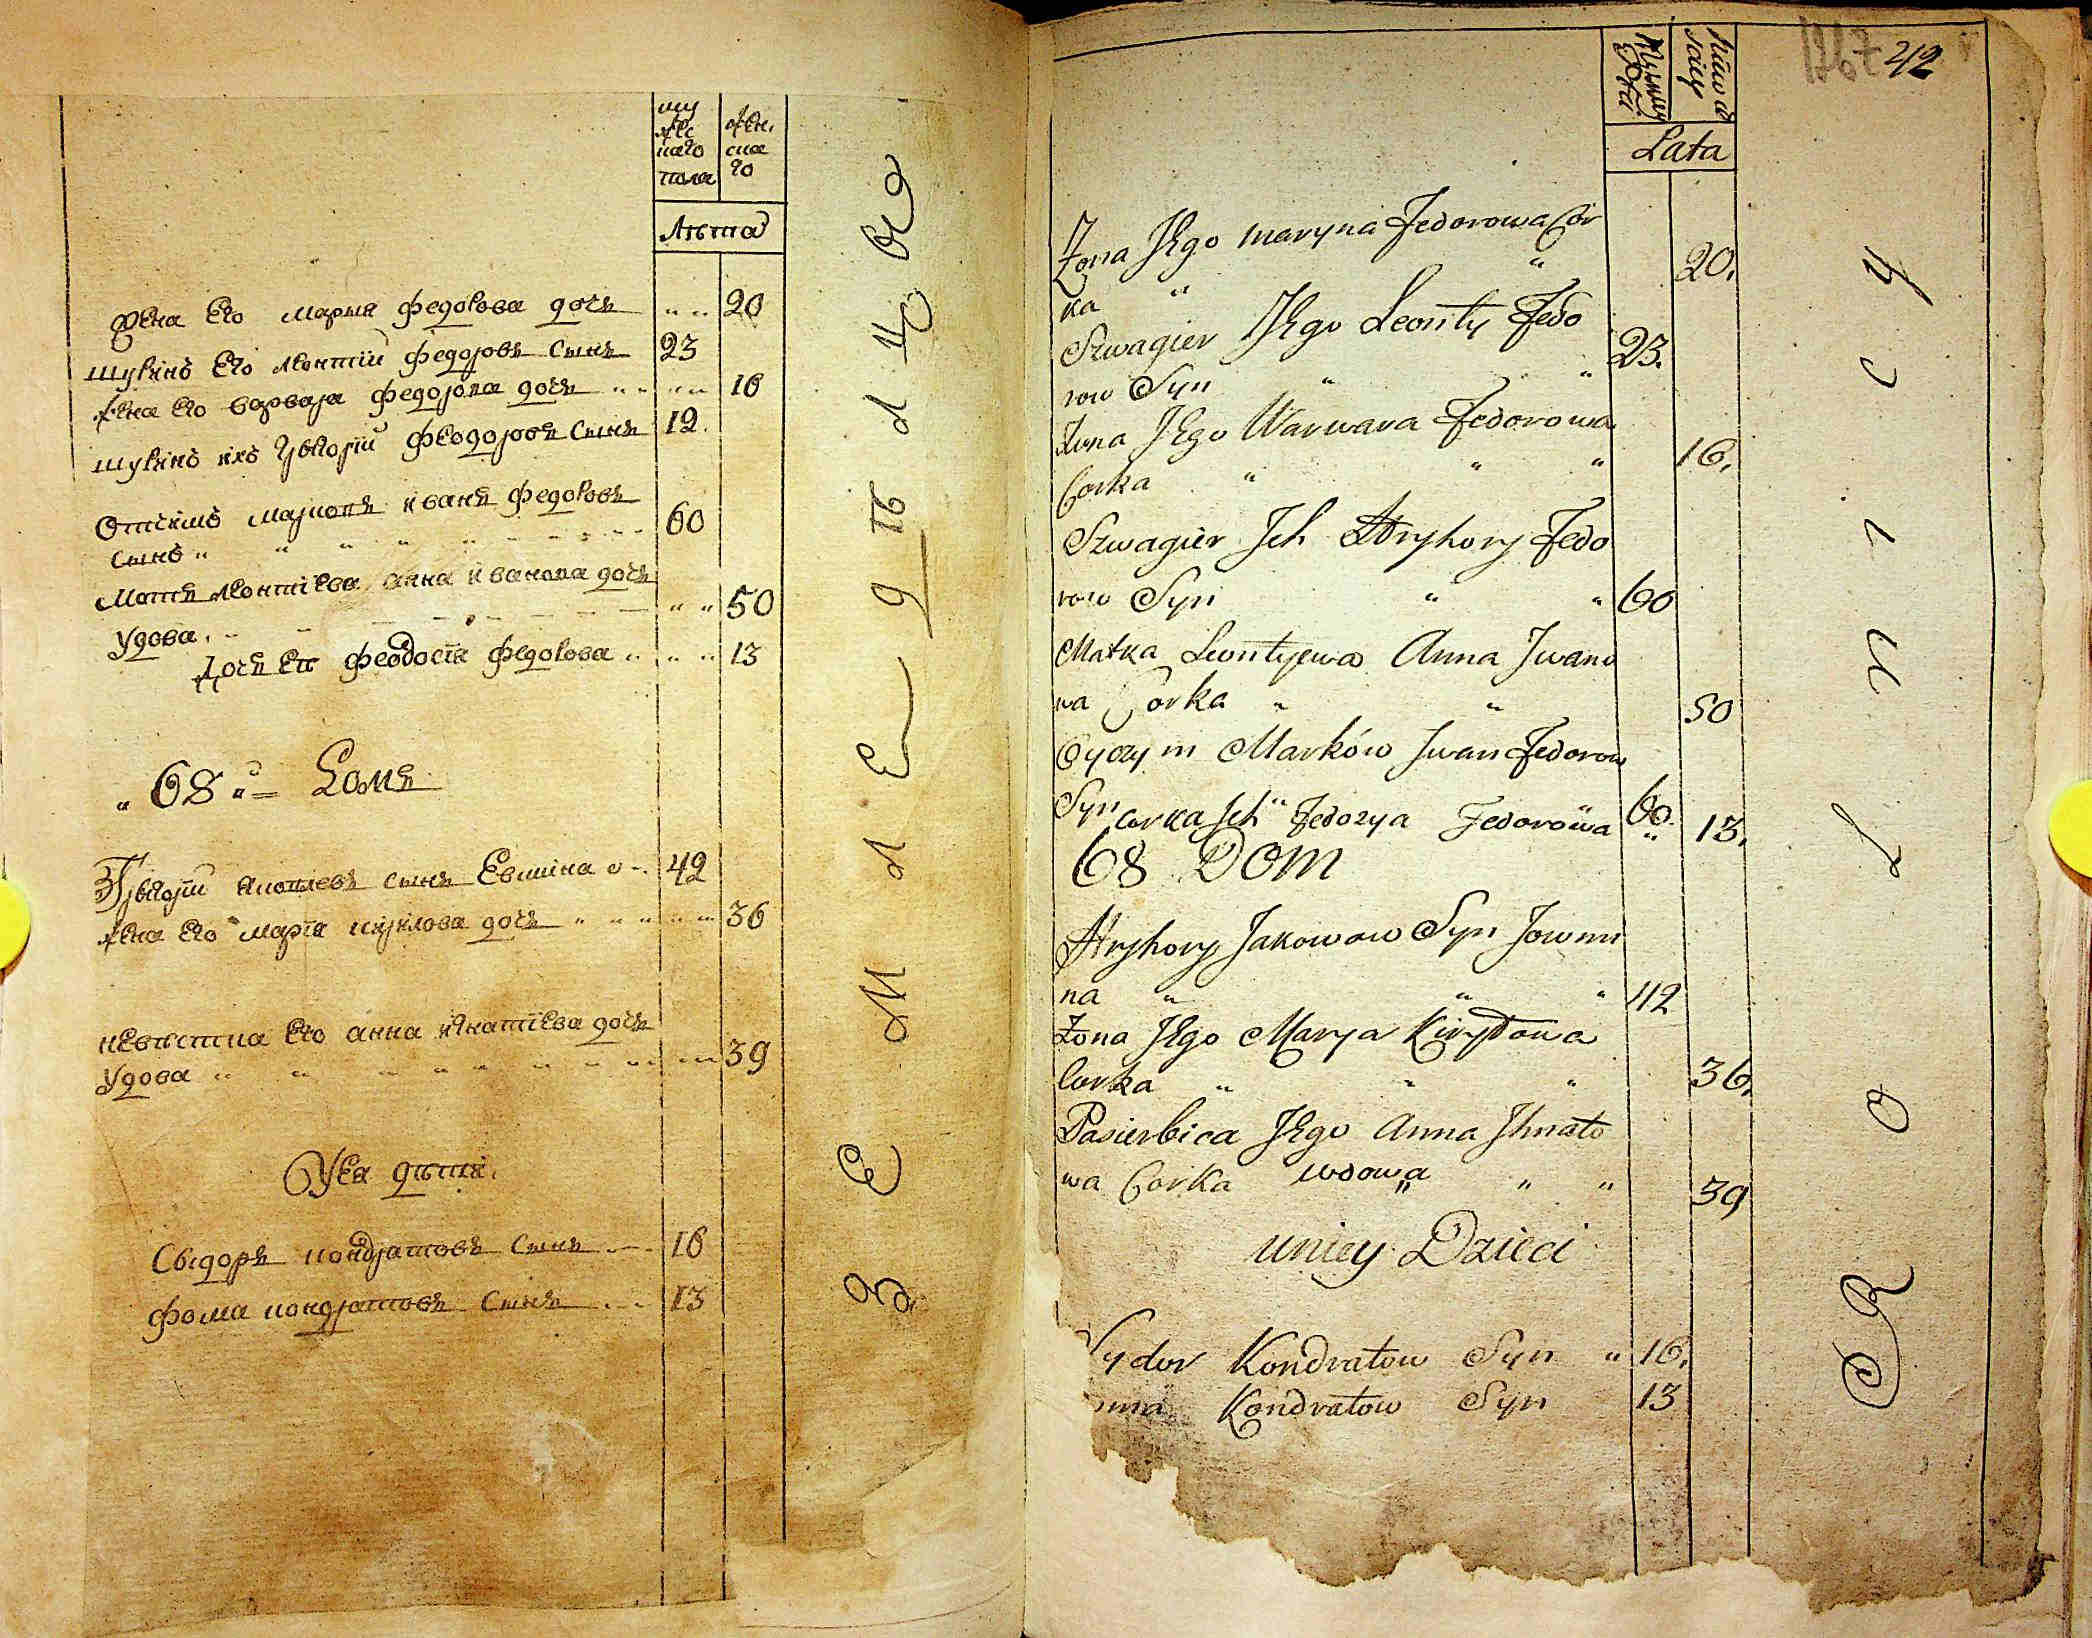 муж
ска
наго
пола
женс
ска
го
Лѣта
Жена его марья федорова дочь " " 20
шуринъ его леонтій федоровъ сынъ 23
жена его варвара федорова дочь " " " " 16
шуринъ ихъ григорій феодоровъ сынъ 12
Отчимъ марковъ иванъ федоровъ
сынъ " " " " " 60
Мать леонтіева анна иванова дочь
удова " " 50
Дочь ея феодосія федорова " " " 13
" 68 " Домъ
Григорій яковлевъ сынъ Евмина 42
жена его марія кирилова дочь " " " " 36
невѣстка его анна игнатіева дочь
удова " " " " " " 39
Уея дѣти
Сыдоръ кондратовъ сынъ 16
фома кондратовъ сынъ 13
земледѣлцы
1267 42
Lata
Żona Jego maryna Fedorowa Cor
ka " " 20.
Szwagier Jego Leonty Fedo
row Syn " " 23.
Żona Jego Warwara Fedorowa
Corka " " " 16.
Szwagier Ich Hryhory Fedo
row Syn " " 60
Matka Leontyjewa Anna Iwano
wa Corka " " 50
Oyczym Marków Iwan Fedorow
Syn corka Ich Fedozya Fedorowa 60. " 13.
68 Dom
Hryhory Jakowow Syn Jowmi
na " " " 42
Żona Jego Marya Kiryłowa
Corka " " " 36.
Pasierbica Jego Anna Ihnato
wa Corka wdowa " " " 39
uniey Dzieci
ydor Kondratow Syn " 16.
Kondratow Syn 13
Rolnicy